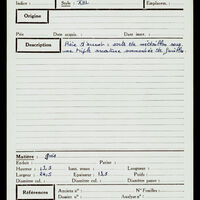 Indice : Style : XIII Emplacem. :
Origine
Prix : Date acquis. : Date inser. :
Description Pièce d'armure : sorte de médaillon sous
une triple arcature surmontée de feuilles
Matière : grès
Endroit : Partie :
Hauteur : 23,5 haut. assis. : Longueur :
Largeur : 24,5 Epaisseur : 13,5 Poids :
Diamètre col. : Diamètre : Diamètre panse :
Références Anciens nos : No Feuilles :
Dossier no : Analyse no :